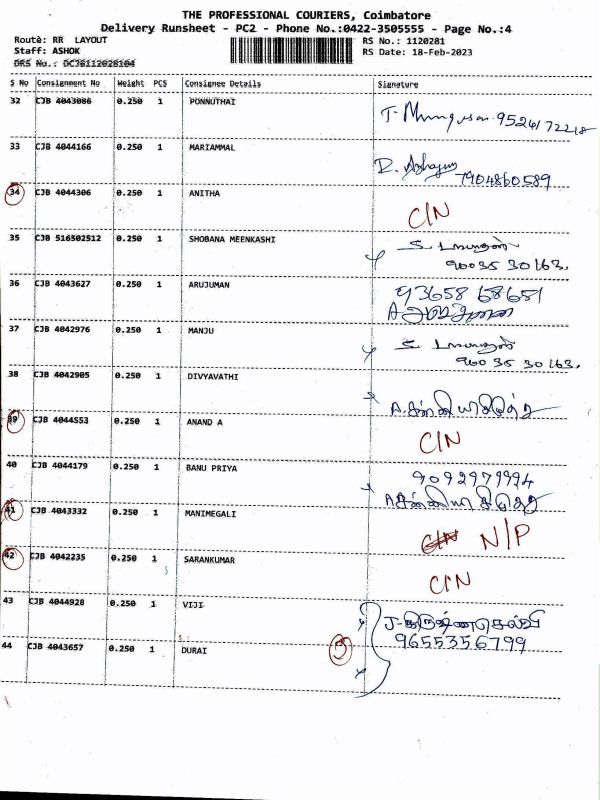 THE PROFESSIONAL COURIERS, Coimbatore
Delivery Runsheet - PC2 - Phone No.:0422-3505555 - Page No.:4
Route: RR LAYOUT
RS No.: 1120281
Staff: ASHOK
RS Date: 18-Feb-2023
DRS No.: DCJB112028104
S No Consignment No Weight PCS Consignee Details Signature
32 CJB 4043086 0.250 1 PONNUTHAI
33 CJB 4044166 0.250 1 MARIAMMAL
7904860589
34 CJB 4044306 0.250 1 ANITHA
C/N
35 CJB 516502512 0.250 1 SHOBANA MEENKASHI
90035 30163.
36 CJB 4043627 0.250 1 ARUJUMAN 93658 68651
37 CJB 4042976 0.250 1 MANJU
90035 30163.
38 CJB 4042905 0.250 1 DIVYAVATHI
39 CJB 4044553 0.250 1 ANAND A
C/N
40 CJB 4044179 0.250 1 BANU PRIYA 9092979994
41 CJB 4043332 0.250 1 MANIMEGALI
C/N N/P
42 CJB 4042235 0.250 1 SARANKUMAR
C/N
43 CJB 4044928 0.250 1 VIJI
9655356799
44 CJB 4043657 0.250 1 DURAI 5